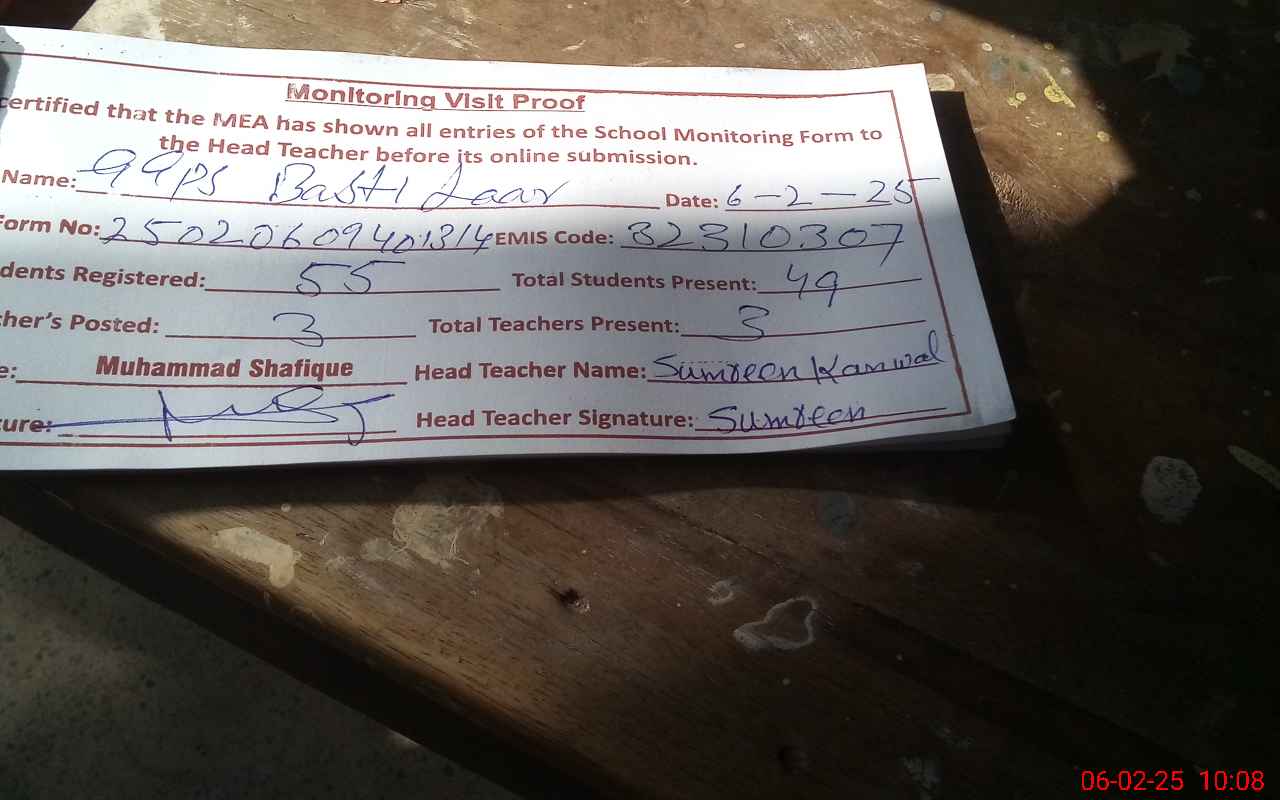 Monitoring Visit Proof
certified that the MEA has shown all entries of the School Monitoring Form to
the Head Teacher before its online submission.
Name: GGPS Basti Laar Date: 6-2-25
Form No: 25020609401314 EMIS Code: 32310307
dents Registered: 55 Total Students Present: 49
her's Posted: 3 Total Teachers Present: 3
e: Muhammad Shafique Head Teacher Name: Sumreen Kanwal
ure: Head Teacher Signature: Sumreen
06-02-25 10:08